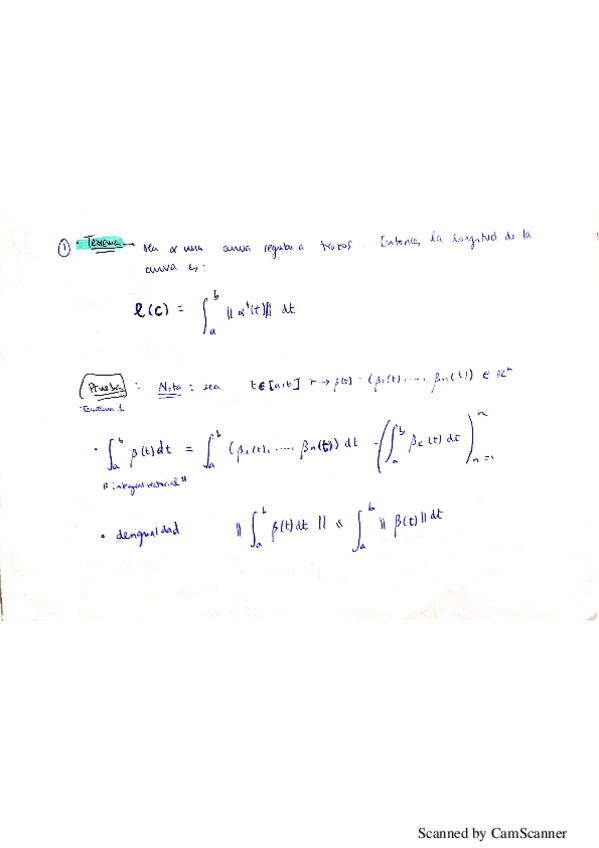 ① • Teorema → sea α una curva regular a trozos. Entonces, la longitud de la
curva es:
l(c) = ∫_a^b ||α'(t)|| dt
Prueba : Nota : sea t ∈ [a,b] ↦ β(t) = (β₁(t), ...., βn(t)) ∈ ℝⁿ
Teorema 1
• ∫_a^b β(t) dt = ∫_a^b (β₁(t), ...., βn(t)) dt = (∫_a^b βk(t) dt)_{n=1}^n
"integral vectorial"
• desigualdad ||∫_a^b β(t) dt|| ≤ ∫_a^b ||β(t)|| dt
Scanned by CamScanner